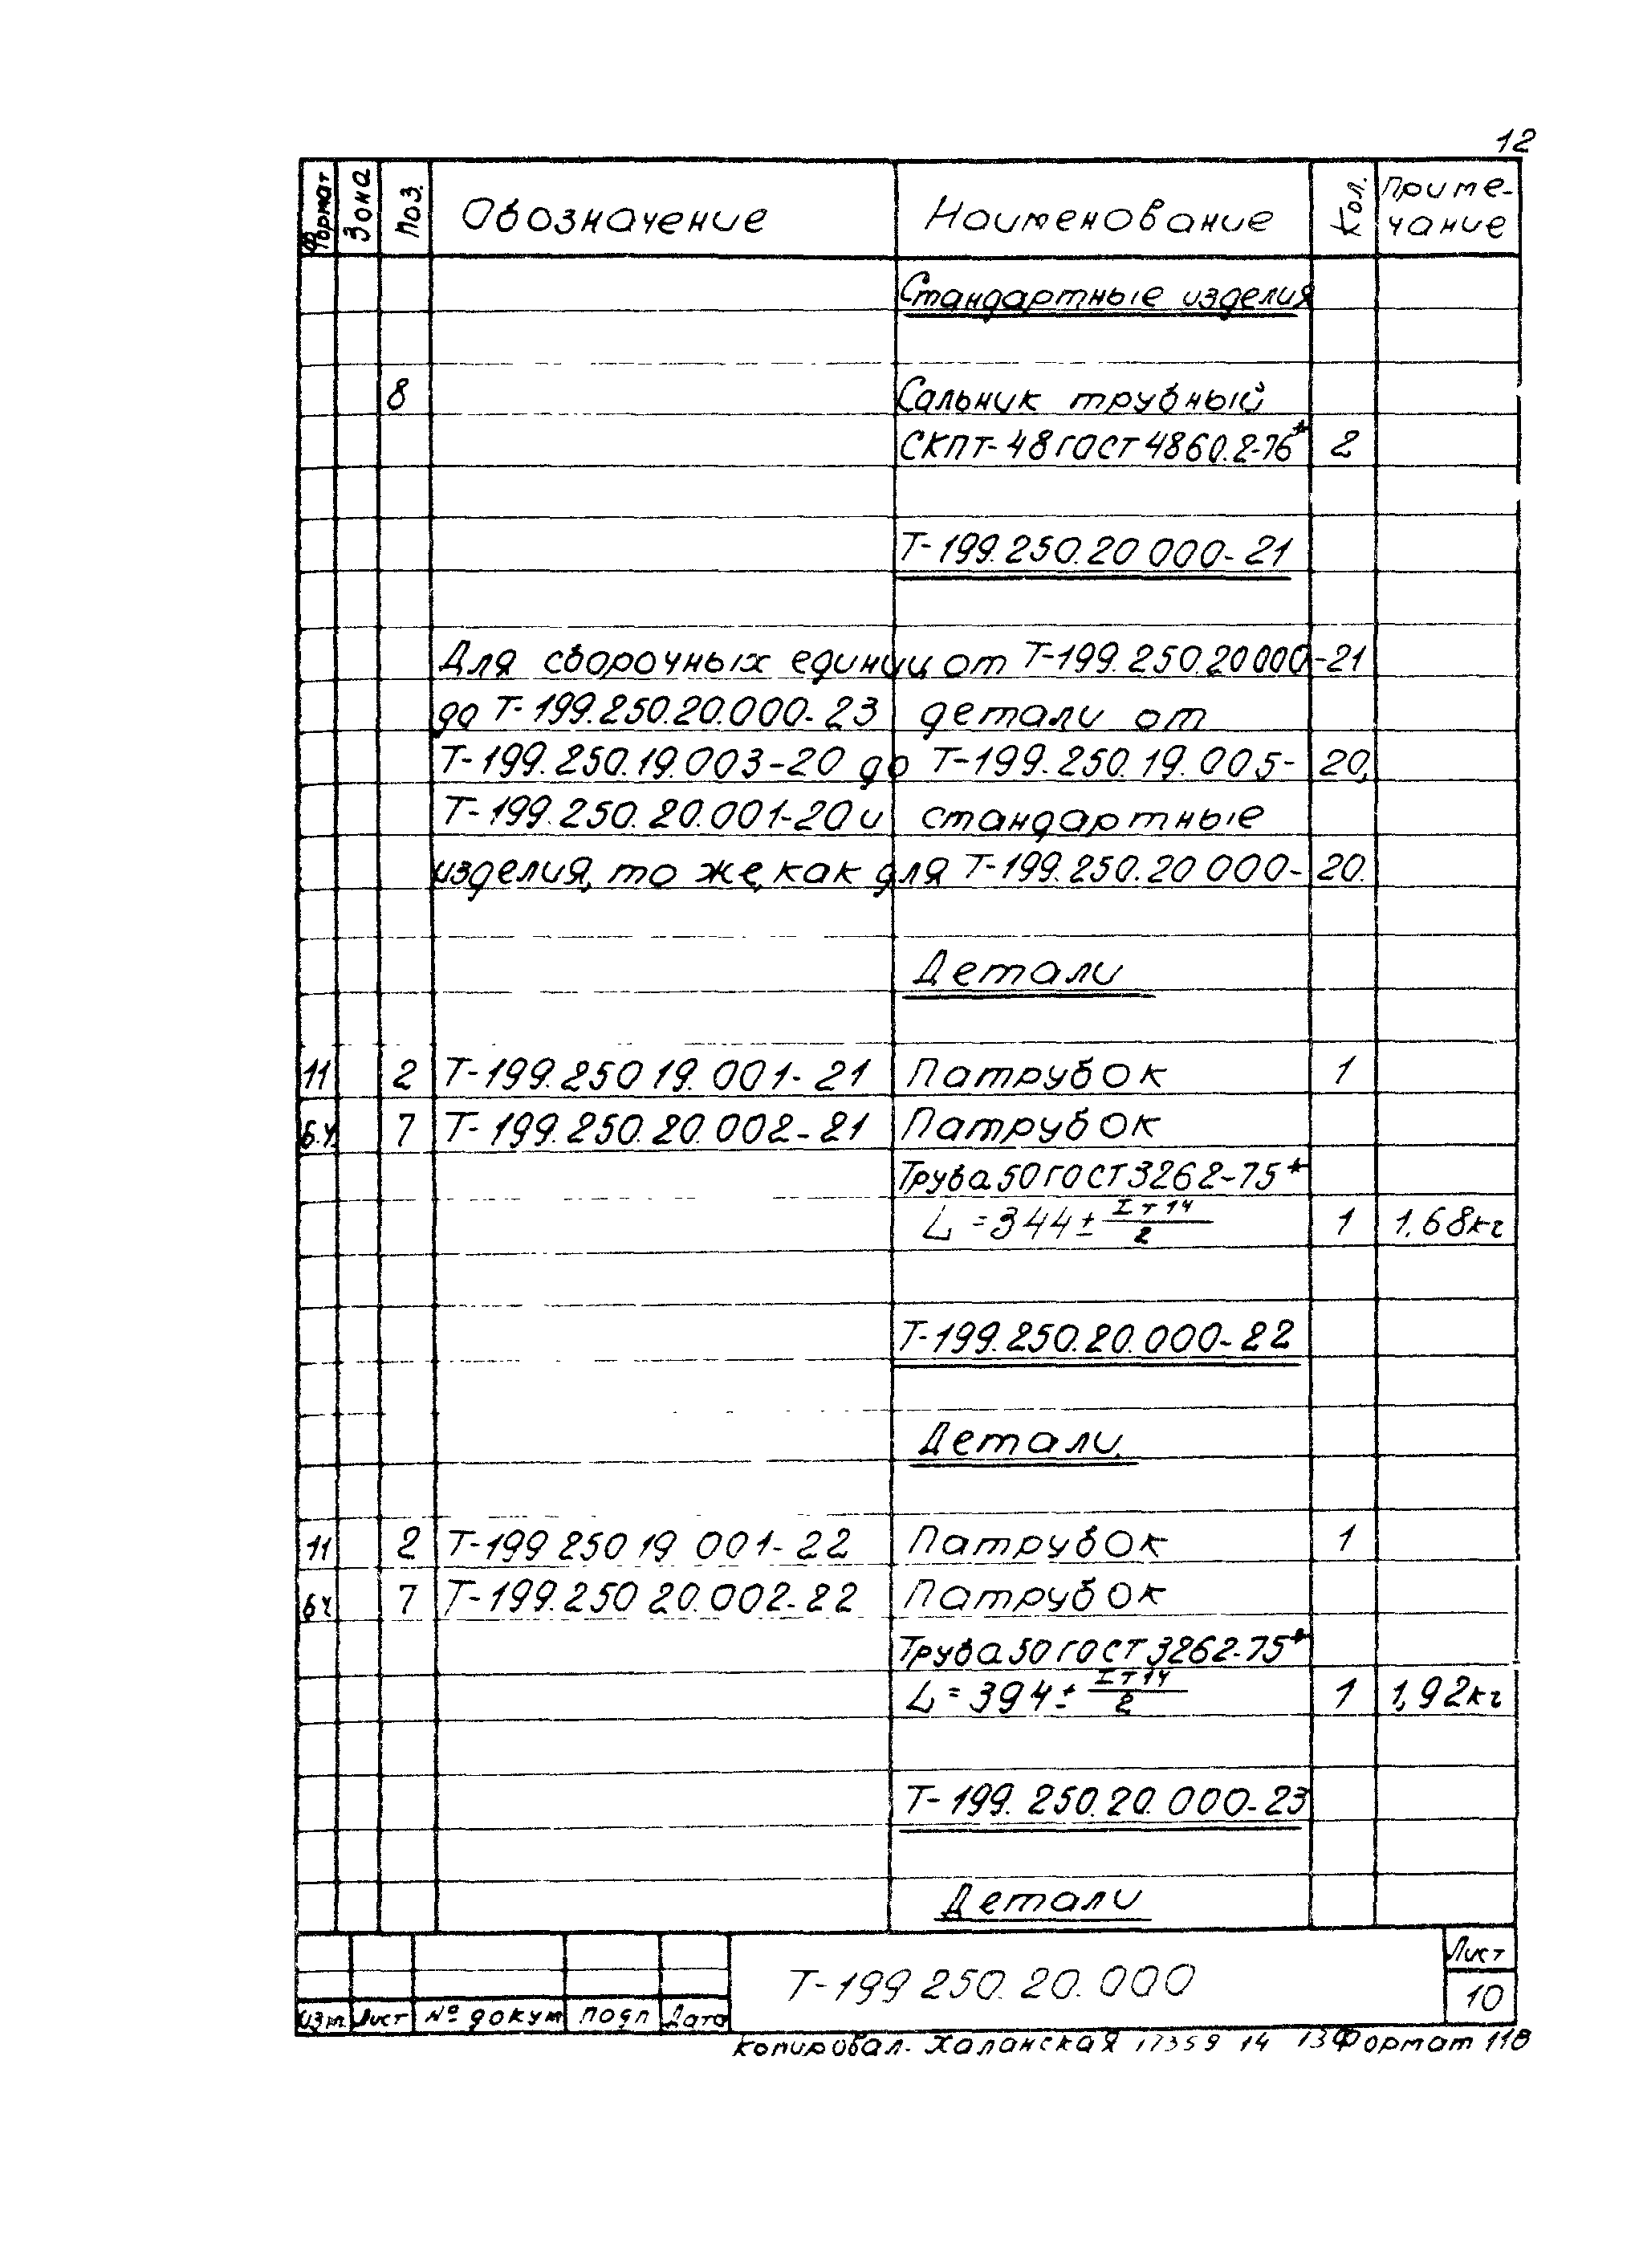 12
Формат Зона Поз. Обозначение Наименование Кол. Приме-
чание
Стандартные изделия
8 Сальник трубный
СКПТ-48 ГОСТ 4860.2-76* 2
Т-199.250.20 000-21
Для сборочных единиц от Т-199.250.20000-21
до Т-199.250.20.000-23 детали от
Т-199.250.19.003-20 до Т-199.250.19.005-20,
Т-199.250.20.001-20 и стандартные
изделия, то же, как для Т-199.250.20 000-20.
Детали
11 2 Т-199.250 19.001-21 Патрубок 1
б.ч. 7 Т-199.250.20.002-21 Патрубок
Труба 50 ГОСТ 3262-75*
L=344± IT14/2 1 1,68кг
Т-199.250.20.000-22
Детали.
11 2 Т-199 250 19 001-22 Патрубок 1
бч 7 Т-199.250 20.002-22 Патрубок
Труба 50 ГОСТ 3262-75*
L=394± IT14/2 1 1,92кг
Т-199.250.20.000-23
Детали
Т-199 250.20.000
Лист
10
Изм. Лист № докум подп Дата
Копировал- Халанская 17359 14 13 Формат 11В